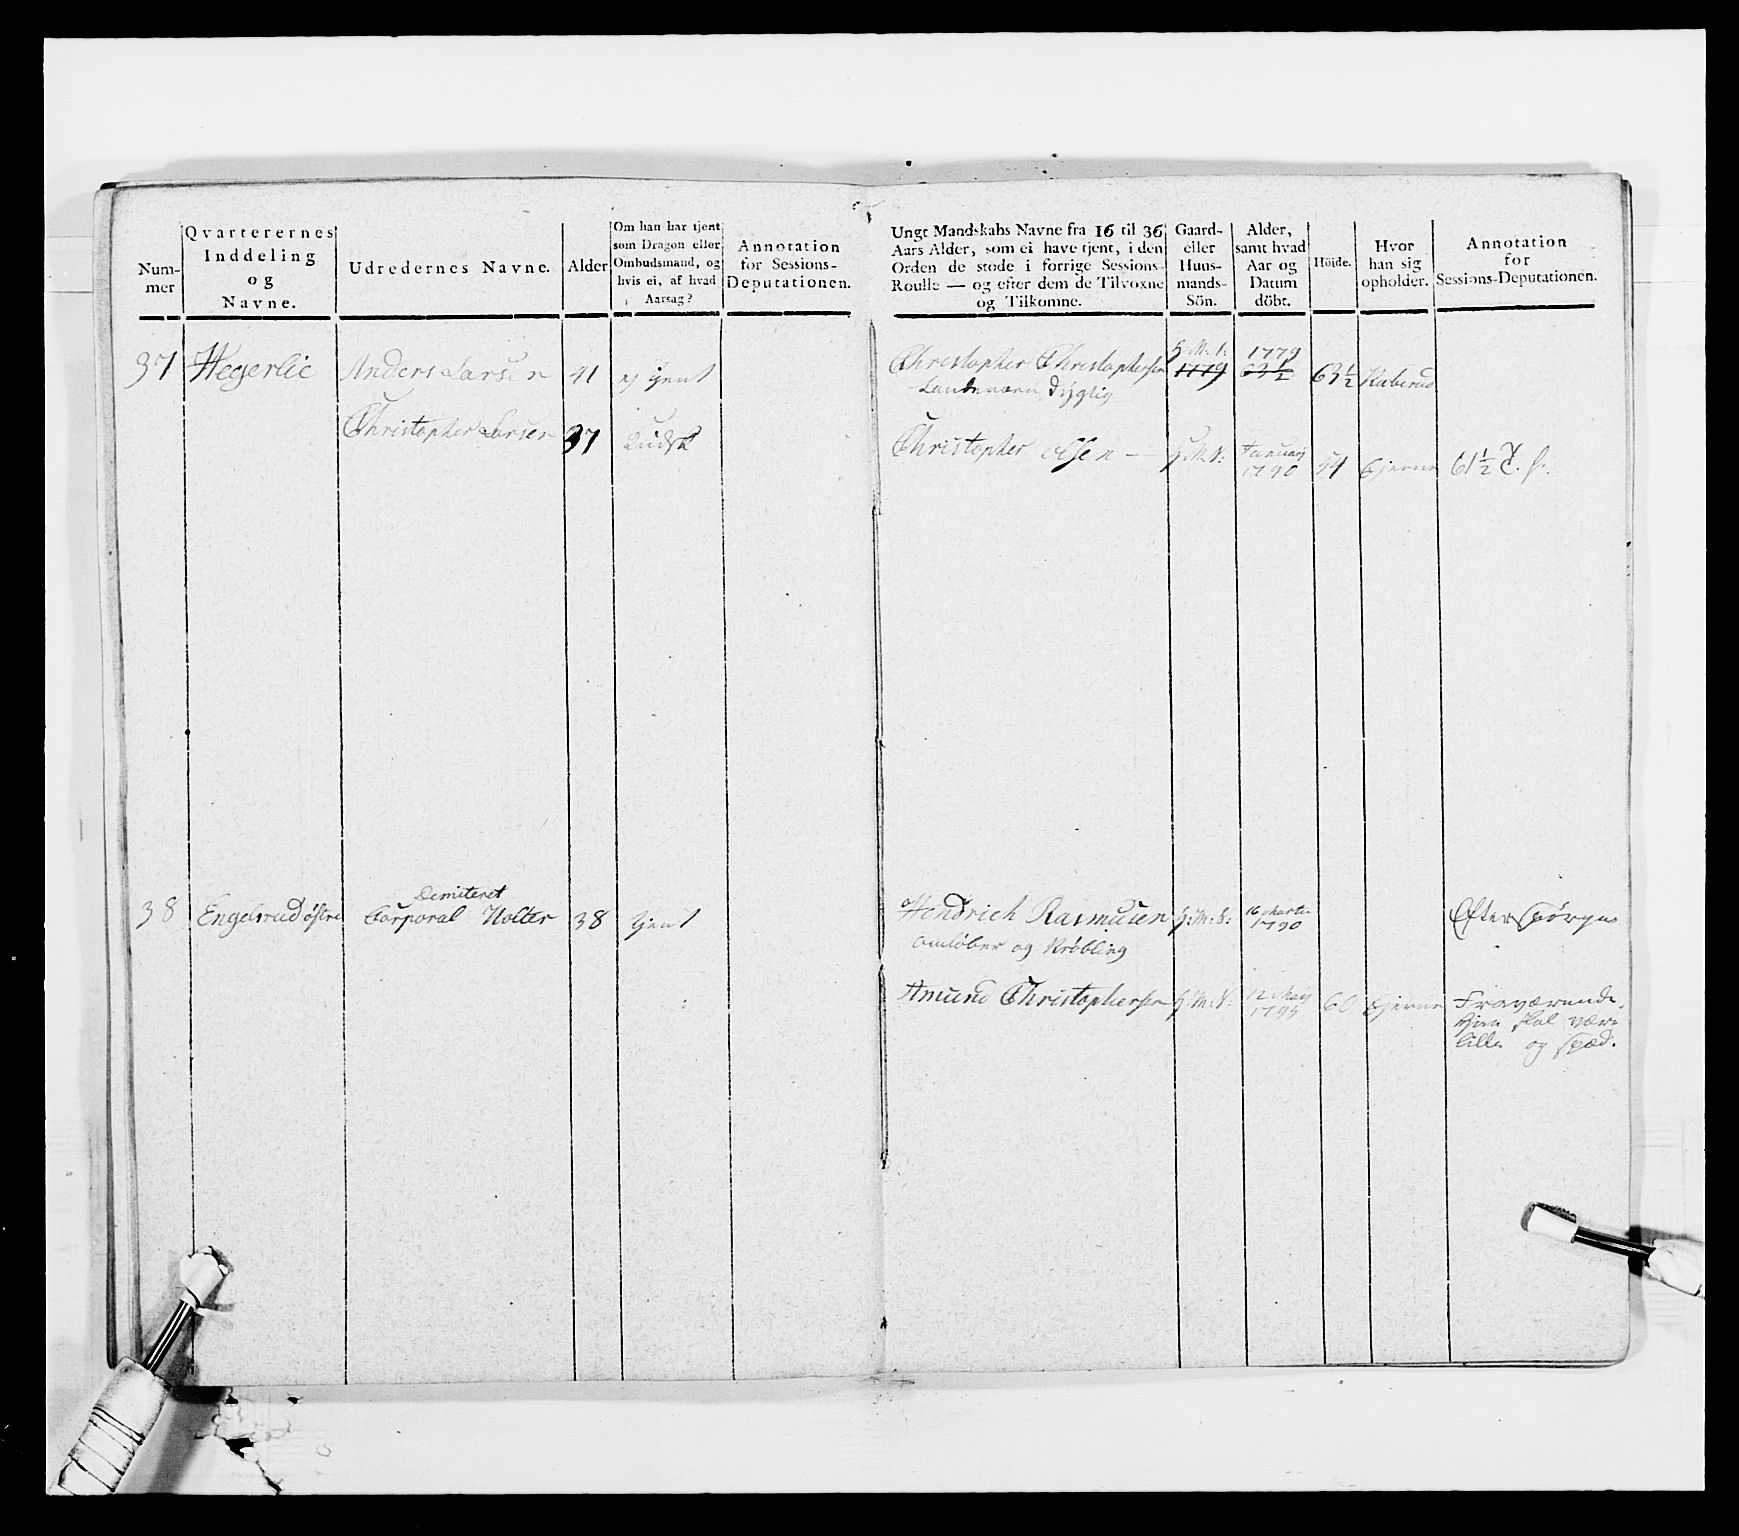 Num-
mer
Qvarterernes
Inddeling
og
Navne.
Udredernes Navne.
Alder
Om han har tjent
som Dragon eller
Ombudsmand, og
hvis ei, af hvad
Aarsag?
Annotation
for Sessions-
Deputationen.
Ungt Mandskabs Navne fra 16 til 36
Aars Alder, som ei have tjent, i den
Orden de stode i forrige Sessions-
Roulle — og efter dem de Tilvoxne
og Tilkomne.
Gaard-
eller
Huus-
mands-
Sön.
Alder,
samt hvad
Aar og
Datum
döbt.
Höide.
Hvor
han sig
opholder.
Annotation
for
Sessions-Deputationen.
37 Hegerlie Anders Larsen 41 ej tjent
Christopher Larsen 37
Christopher Christophersen 1779 1779 63½ 63½
Landeværn dygtig
Christopher Olsen — H: M: S: Januarj 1790 54 Hjemme 61½
38 Engelsrud østre Demiteret
Corporal Holter 38 tjent
Hendrich Rasmusen H: M: S: 16 Martii 1790 Efterspørges
omløber og Krøbling
Amund Christophersen H: M: S: 12 Maij 1795 60 Hjemme Fraværende,
skal være
lille og spæd.